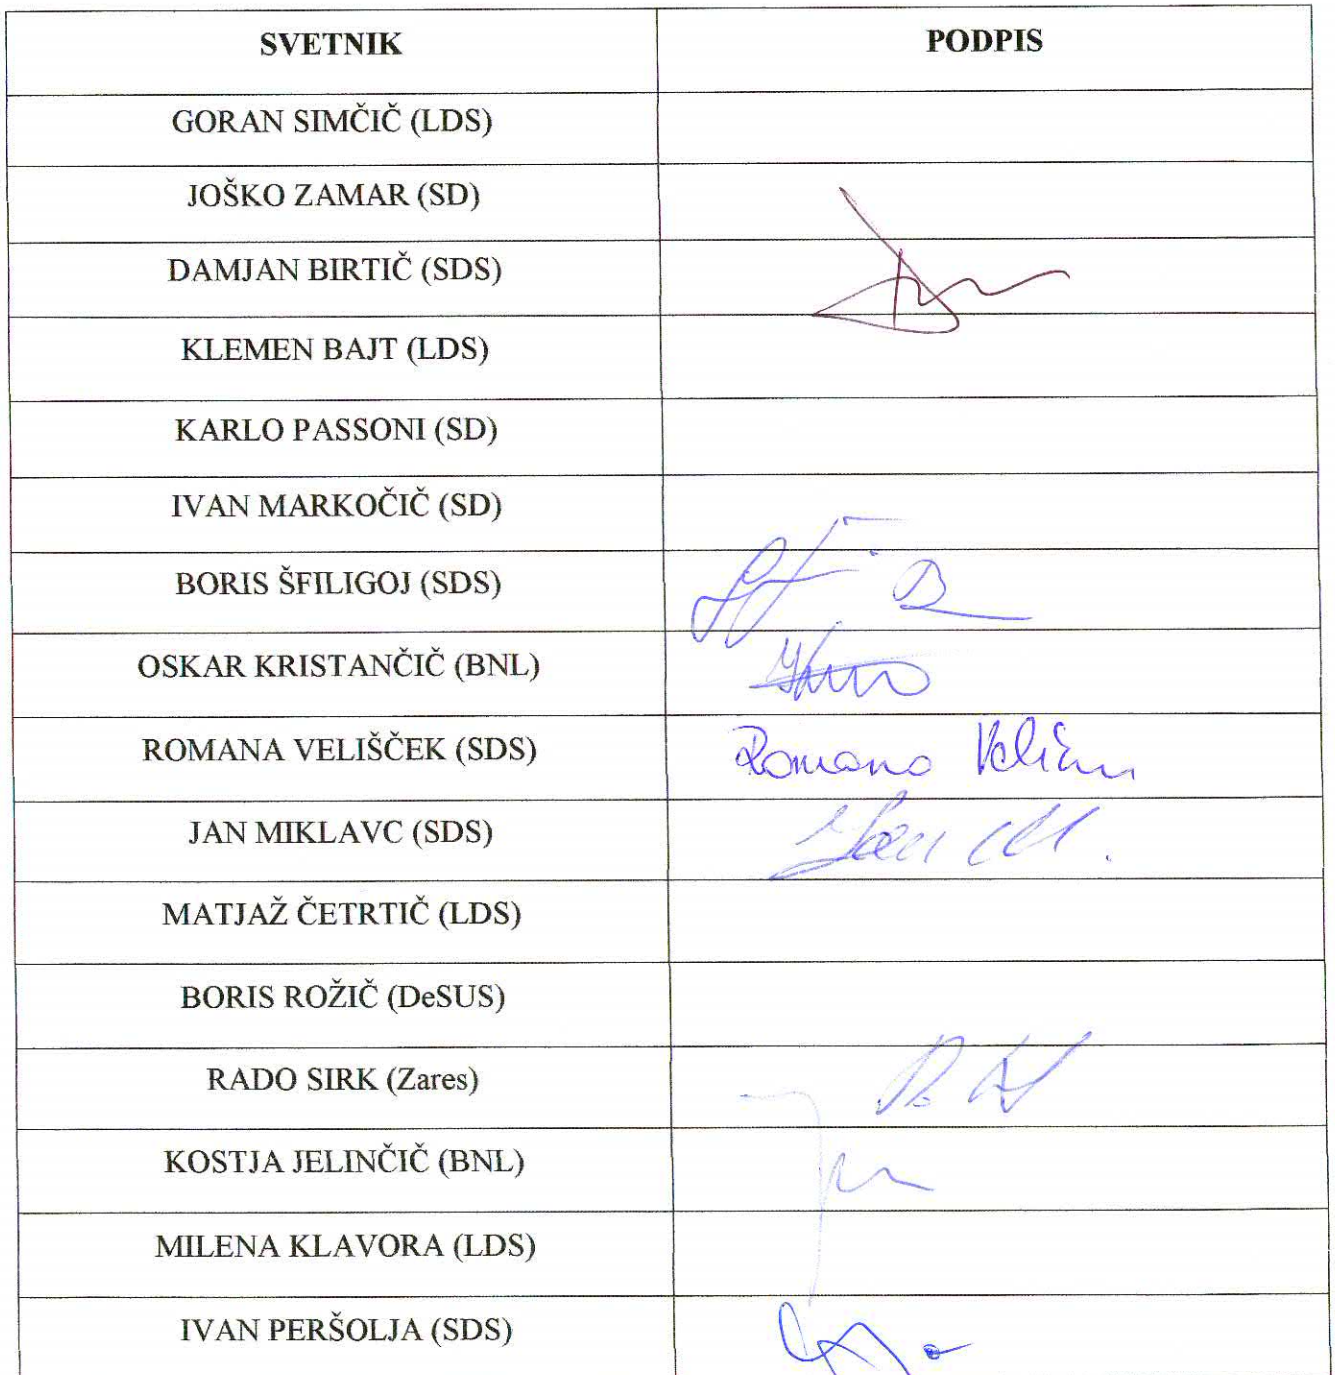 SVETNIK PODPIS
GORAN SIMČIČ (LDS)
JOŠKO ZAMAR (SD)
DAMJAN BIRTIČ (SDS)
KLEMEN BAJT (LDS)
KARLO PASSONI (SD)
IVAN MARKOČIČ (SD)
BORIS ŠFILIGOJ (SDS)
OSKAR KRISTANČIČ (BNL)
ROMANA VELIŠČEK (SDS) Romana
JAN MIKLAVC (SDS) Jan M.
MATJAŽ ČETRTIČ (LDS)
BORIS ROŽIČ (DeSUS)
RADO SIRK (Zares)
KOSTJA JELINČIČ (BNL)
MILENA KLAVORA (LDS)
IVAN PERŠOLJA (SDS)